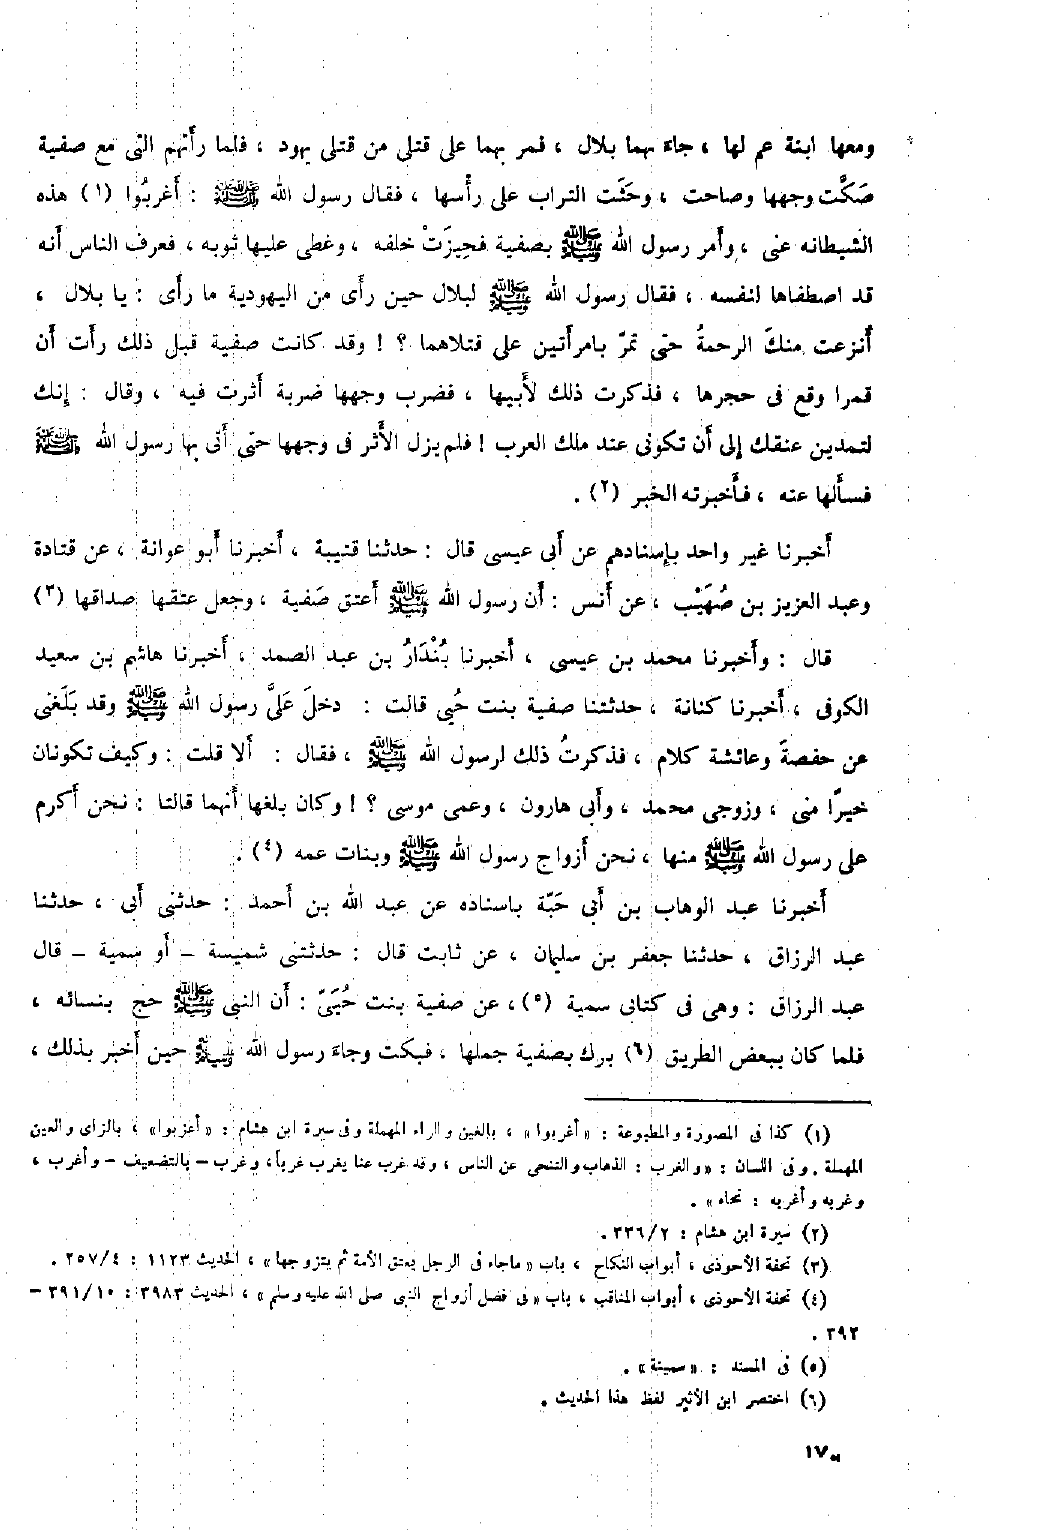 ومعها ابنة عم لها ، جاء بهما بلال ، فمر بهما على قتلى من قتلى يهود ، فلما رأتهم التى مع صفية
صَكَّت وجهها وصاحت ، وحَثَت التراب على رأسها ، فقال رسول الله ﷺ : أَغربُوا (١) هذه
الشيطانه عنى ، وأَمر رسول الله ﷺ بصفية فحِيزَتْ خلفه ، وغطى عليها ثوبه ، فعرف الناس أنه
قد اصطفاها لنفسه ، فقال رسول الله ﷺ لبلال حين رأَى من اليهودية ما رأَى : يا بلال ،
أَنزعت منكَ الرحمةُ حتى تمرّ بامرأَتين على قتلاهما ؟ ! وقد كانت صفية قبل ذلك رأَت أَن
قمرا وقع فى حجرها ، فذكرت ذلك لأَبيها ، فضرب وجهها ضربة أَثرت فيه ، وقال : إِنك
لتمدين عنقك إِلى أَن تكونى عند ملك العرب ! فلم يزل الأَثر فى وجهها حتى أُتى بها رسول الله ﷺ
فسأَلها عنه ، فأَخبرته الخبر (٢) .
أَخبرنا غير واحد بإِسنادهم عن أَبى عيسى قال : حدثنا قتيبة ، أَخبرنا أَبو عوانة ، عن قتادة
وعبد العزيز بن صُهَيْب ، عن أَنس : أَن رسول الله ﷺ أَعتق صَفية ، وجعل عتقها صداقها (٣)
قال : وأَخبرنا محمد بن عيسى ، أَخبرنا بُنْدَارُ بن عبد الصمد ، أَخبرنا هاشم بن سعيد
الكوفى ، أَخبرنا كنانة ، حدثتنا صفية بنت حُيى قالت : دخلَ عَلَىَّ رسول الله ﷺ وقد بَلَغنى
عن حفصةَ وعائشة كلام ، فذكرتُ ذلك لرسول الله ﷺ ، فقال : أَلا قلت : وكيف تكونان
خيرًا منى ، وزوجى محمد ، وأَبى هارون ، وعمى موسى ؟ ! وكان بلغها أَنهما قالتا : نحن أَكرم
على رسول الله ﷺ منها ، نحن أَزواج رسول الله ﷺ وبنات عمه (٤) .
أَخبرنا عبد الوهاب بن أَبي حَبّة باسناده عن عبد الله بن أَحمد : حدثنى أَبى ، حدثنا
عبد الرزاق ، حدثنا جعفر بن سليمان ، عن ثابت قال : حدثتنى شميسة - أَو سمية - قال
عبد الرزاق : وهى فى كتابى سمية (٥) ، عن صفية بنت حُيَىّ : أَن النبى ﷺ حج بنسائه ،
فلما كان ببعض الطريق (٦) برك بصفية جملها ، فبكت وجاءَ رسول الله ﷺ حين أُخبر بذلك ،
(١) كذا فى المصورة والمطبوعة : «أغربوا» ، بالغين والراء المهملة وفى سيرة ابن هشام : «أعزبوا» ، بالزاى والعين
المهملة . وفى اللسان : «والغرب : الذهاب والتنحى عن الناس ، وقد غرب عنا يغرب غرباً ، وغرب - بالتضعيف - وأغرب ،
وغربه وأغربه : نحاه» .
(٢) سيرة ابن هشام : ٣٣٦/٢ .
(٣) تحفة الأحوذى ، أبواب النكاح ، باب «ماجاء فى الرجل يعتق الأمة ثم يتزوجها» ، الحديث ١١٢٣ : ٢٥٧/٤ .
(٤) تحفة الأحوذى ، أبواب المناقب ، باب «فى فضل أزواج النبى صلى الله عليه وسلم» ، الحديث ٣٩٨٣ : ٣٩١/١٠ -
٣٩٢ .
(٥) فى المسند : «سمينة» .
(٦) اختصر ابن الأثير لفظ هذا الحديث .
١٧٠